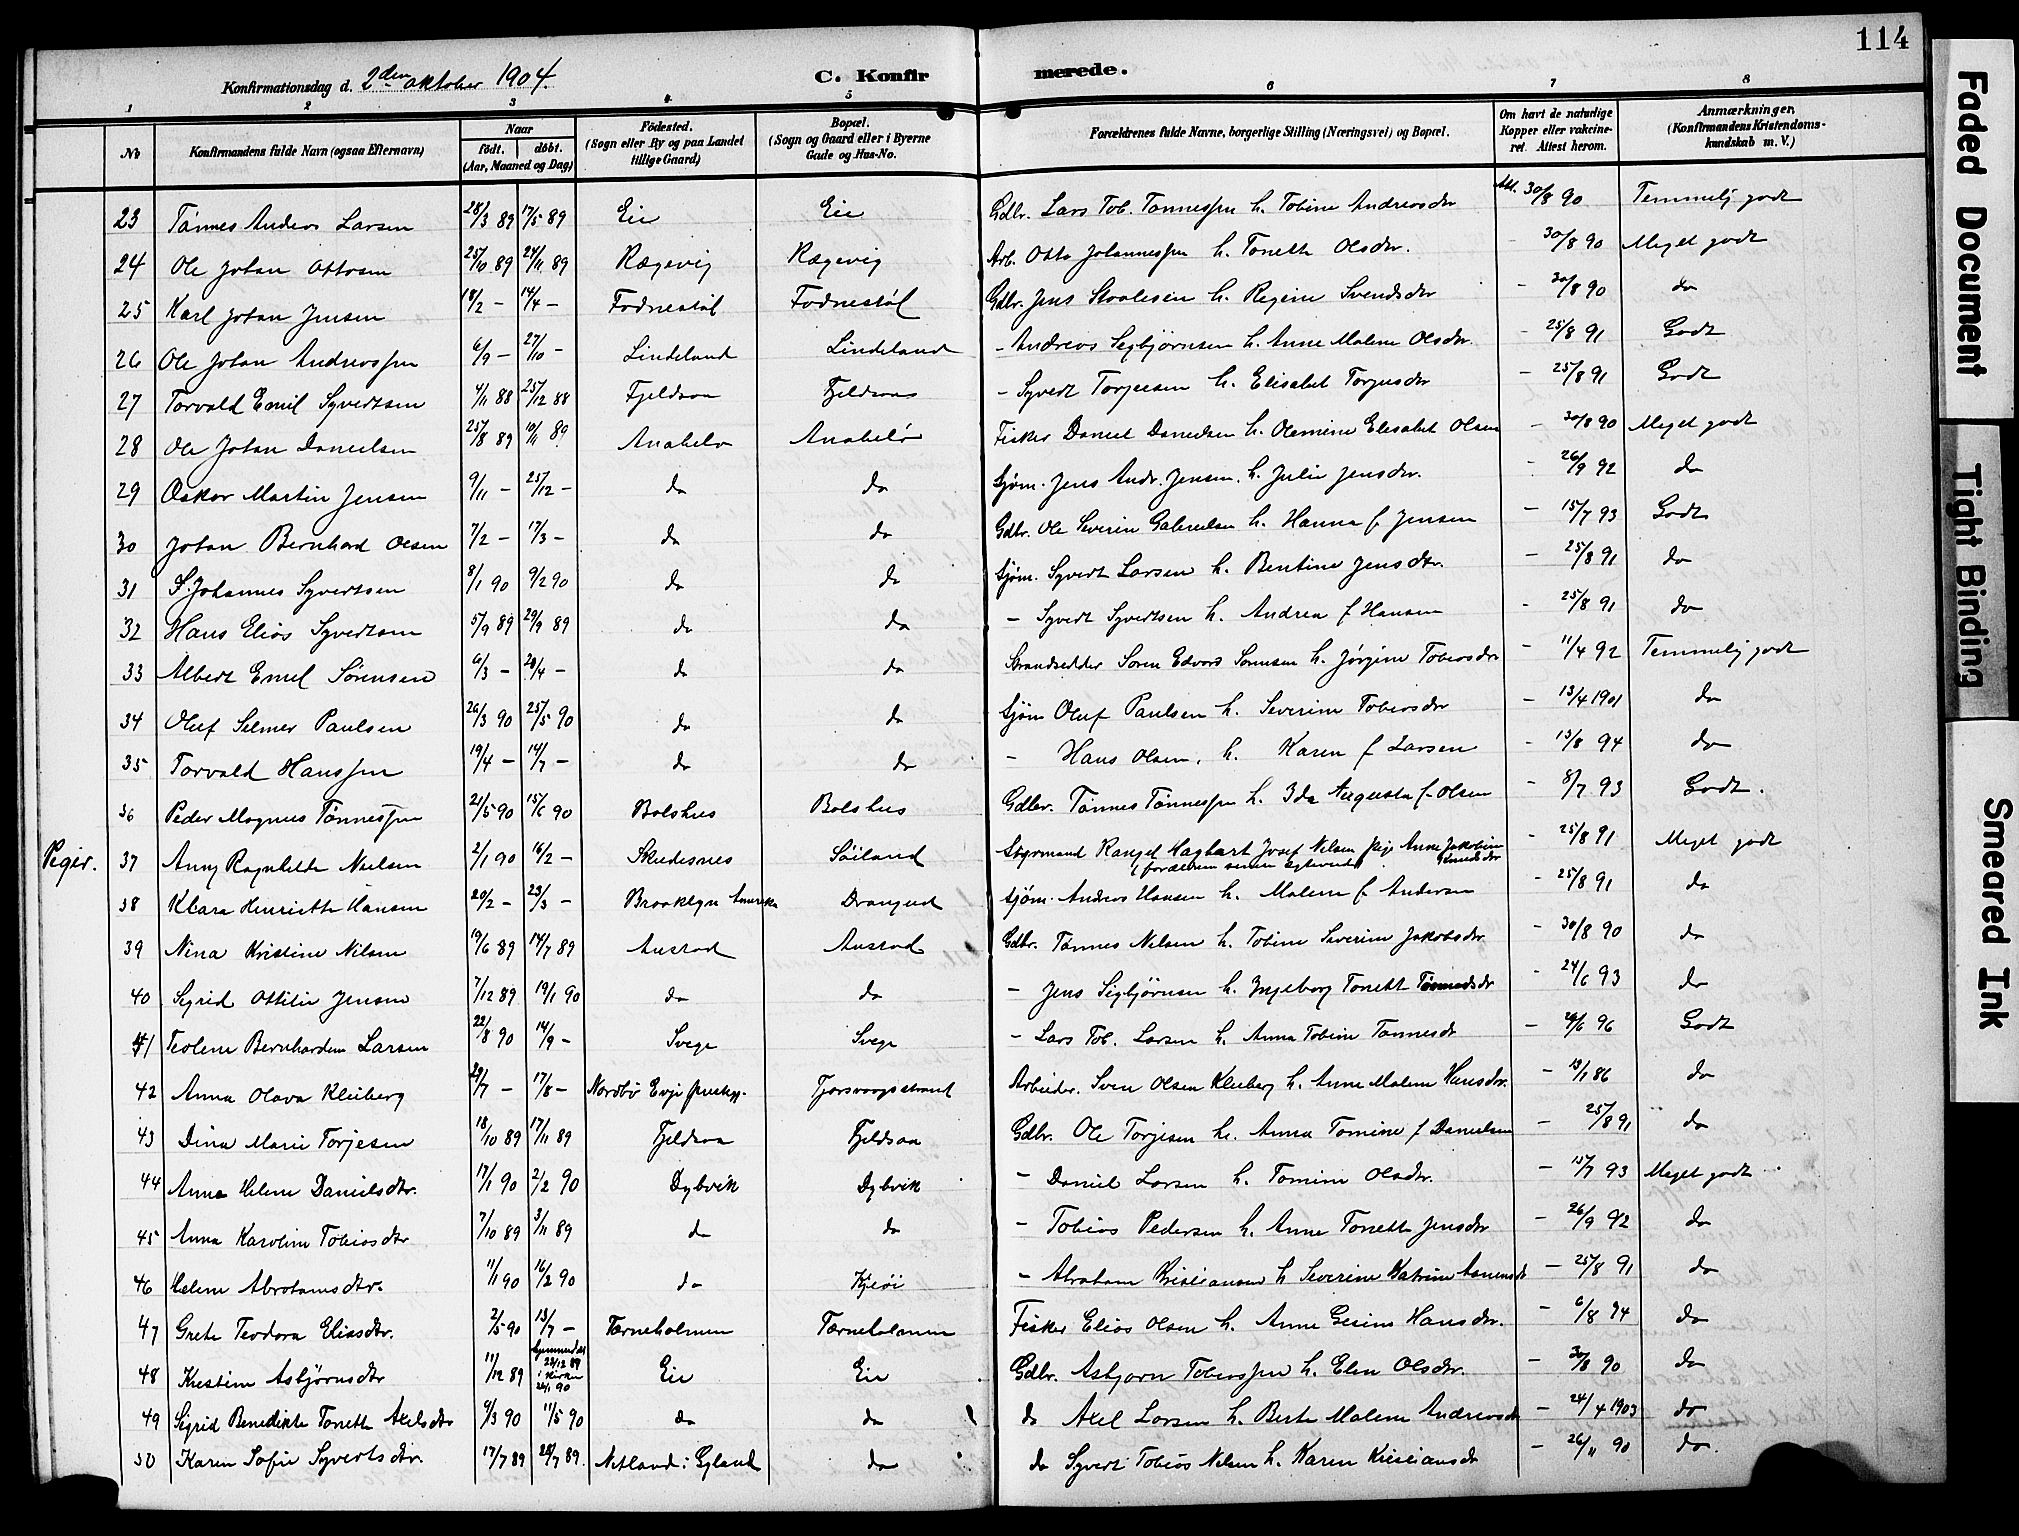 114
Konfirmationsdag d. 2den oktober 1904.
C. Konfirmerede.
1 2 3 4 5 6 7 8
No
Konfirmandens fulde Navn (ogsaa Efternavn)
Naar
födt. döbt.
(Aar, Maaned og Dag)
Födested.
(Sogn eller By og paa Landet
tillige Gaard)
Bopæl.
(Sogn og Gaard eller i Byerne
Gade og Hus-No.
Forældrenes fulde Navne, borgerlige Stilling (Næringsvei) og Bopæl.
Om havt de naturlige
Kopper eller vakcine-
ret. Attest herom.
Anmærkninger.
(Konfirmandens Kristendoms-
kundskab m. V.)
23 Tønnes Andreas Larsen 28/3 89 17/5 89 Eie Eie Gdbr. Lars Tob. Tønnessen h. Tobine Andreasdtr Att. 30/8 90 Temmelig godt
24 Ole Johan Ottosen 25/10 89 24/11 89 Rægevig Rægevig Arb. Otto Johannessen h. Tonette Olsdtr. - 30/8 90 Meget godt
25 Karl Johan Jensen 18/2 - 14/4 - Fodnestøl Fodnestøl Gdbr. Jens Staalesen h. Regine Svendsdtr - 30/8 90 do
26 Ole Johan Andreassen 6/9 - 27/10 - Lindeland Lindeland - Andreas Sigbjørnsen h. Anne Malene Olsdtr. - 25/8 91 Godt
27 Torvald Emil Syvertsen 4/11 88 25/12 88 Fjeldsaa Fjeldsaa - Syvert Torjesen h. Elisabet Torjusdtr - 25/8 91 Godt
28 Ole Johan Danielsen 25/8 89 10/11 89 Anabelø Anabelø Fisker Daniel Danielsen h. Olemine Elisabet Olsen - 30/8 90 Meget godt
29 Oskar Martin Jensen 9/11 - 25/12 - do do Sjøm. Jens Andr. Jensen h. Julie Jensdtr. - 26/9 92 do
30 Johan Bernhard Olsen 7/2 - 17/3 - do do Gdbr. Ole Severin Gabrielsen h. Hanna f. Jensen - 15/7 93 Godt
31 S. Johannes Syvertsen 8/1 90 9/2 90 do do Sjøm. Syvert Larsen h. Bentine Jensdtr. - 25/8 91 do
32 Hans Elias Syvertsen 5/9 89 29/9 89 do do - Syvert Syvertsen h. Andrea f. Hansen - 25/8 91 do
33 Albert Emil Sørensen 6/3 - 28/4 - do do Strandsidder Søren Edvard Sørensen h. Jørgine Tobiasdtr - 11/4 92 Temmelig godt
34 Oluf Selmer Paulsen 26/3 90 25/5 90 do do Sjøm Oluf Paulsen h. Severine Tobiasdtr - 13/4 1901 do
35 Torvald Hanssen 19/4 - 14/7 - do do - Hans Olsen, h. Karen f. Larsen - 13/8 94 do
36 Peder Magnus Tønnessen 21/5 90 15/6 90 Bolshus Bolshus Gdbr. Tønnes Tønnessen h. Ida Augusta f. Olsen - 8/7 93 Godt.
Piger. 37 Anny Ragnhilde Nielsen 2/1 90 16/2 - Skudesnes Søiland Søgnmand Rangel Haghart Josef Nilsen pige Anne Jakobine
(forældrene senere egteviede) - 25/8 91 Meget godt
38 Klara Henriette Hansen 20/2 - 23/3 - Brooklyn Amerika Drangeid Sjøm. Andreas Hansen h. Malene f. Andersen - 25/8 91 do
39 Nina Kristine Nilsen 19/6 89 14/7 89 Austad Austad Gdbr. Tønnes Nilsen h. Tobine Severine Jakobsdtr - 30/8 90 do
40 Sigrid Ottilie Jensen 7/12 89 19/1 90 do do - Jens Sigbjørnsen h. Ingeborg Tonette Tønnesdtr - 24/6 93 do
41 Teoline Bernhardine Larsen 22/8 90 14/9 - Svege Svege - Lars Tob. Larsen h. Anna Tobine Tønnesdtr - 24/6 96 Godt
42 Anna Olava Kleiberg 29/7 - 17/8 - Nordbø Evje prestegj. Tjorsvaagsstrand Arbeider. Sven Olsen Kleiberg h. Anne Malene Hansdtr. - 19/1 86 do
43 Dina Marie Torjesen 18/10 89 17/11 89 Fjeldsaa Fjeldsaa Gdbr. Ole Torjesen h. Anna Tomine f. Danielsen - 25/8 91 do
44 Anne Helene Danielsdtr. 17/1 90 2/2 90 Dybvik Dybvik - Daniel Larsen h. Tomine Olsdtr. - 15/7 93 Meget godt
45 Anna Karoline Tobiasdtr 7/10 89 3/11 89 do do - Tobias Pedersen h. Anne Tonette Jensdtr - 26/9 92 do
46 Helene Abrahamsdtr. 11/1 90 16/2 90 do Kjeøi - Abraham Kristiansen h Severine Katrine Aanensdt - 25/8 91 do
47 Grete Teodora Eliasdtr. 2/5 90 13/7 - Tærneholmen Tærneholmen Fisker Elias Olsen h. Anne Gesine Hansdtr. - 6/8 94 do
48 Kristine Asbjørnsdtr 11/12 89 hjemmedøbt 22/12 89 i Kirken 26/1 90 Eie Eie Gdbr. Asbjørn Tobiassen h. Elen Olsdtr. - 30/8 90 do
49 Sigrid Benedikte Tonette Axelsdtr 9/3 90 11/5 90 do do do Axel Larsen h. Berte Malene Andreasdt - 24/4 1903 do
50 Karen Sofie Syvertsdtr. 17/7 89 28/7 89. Netland i Gyland do do Syvert Tobias Nilsen h. Karen Kristiansdt - 26/11 90 do.
Faded Document
Tight Binding
Smeared Ink